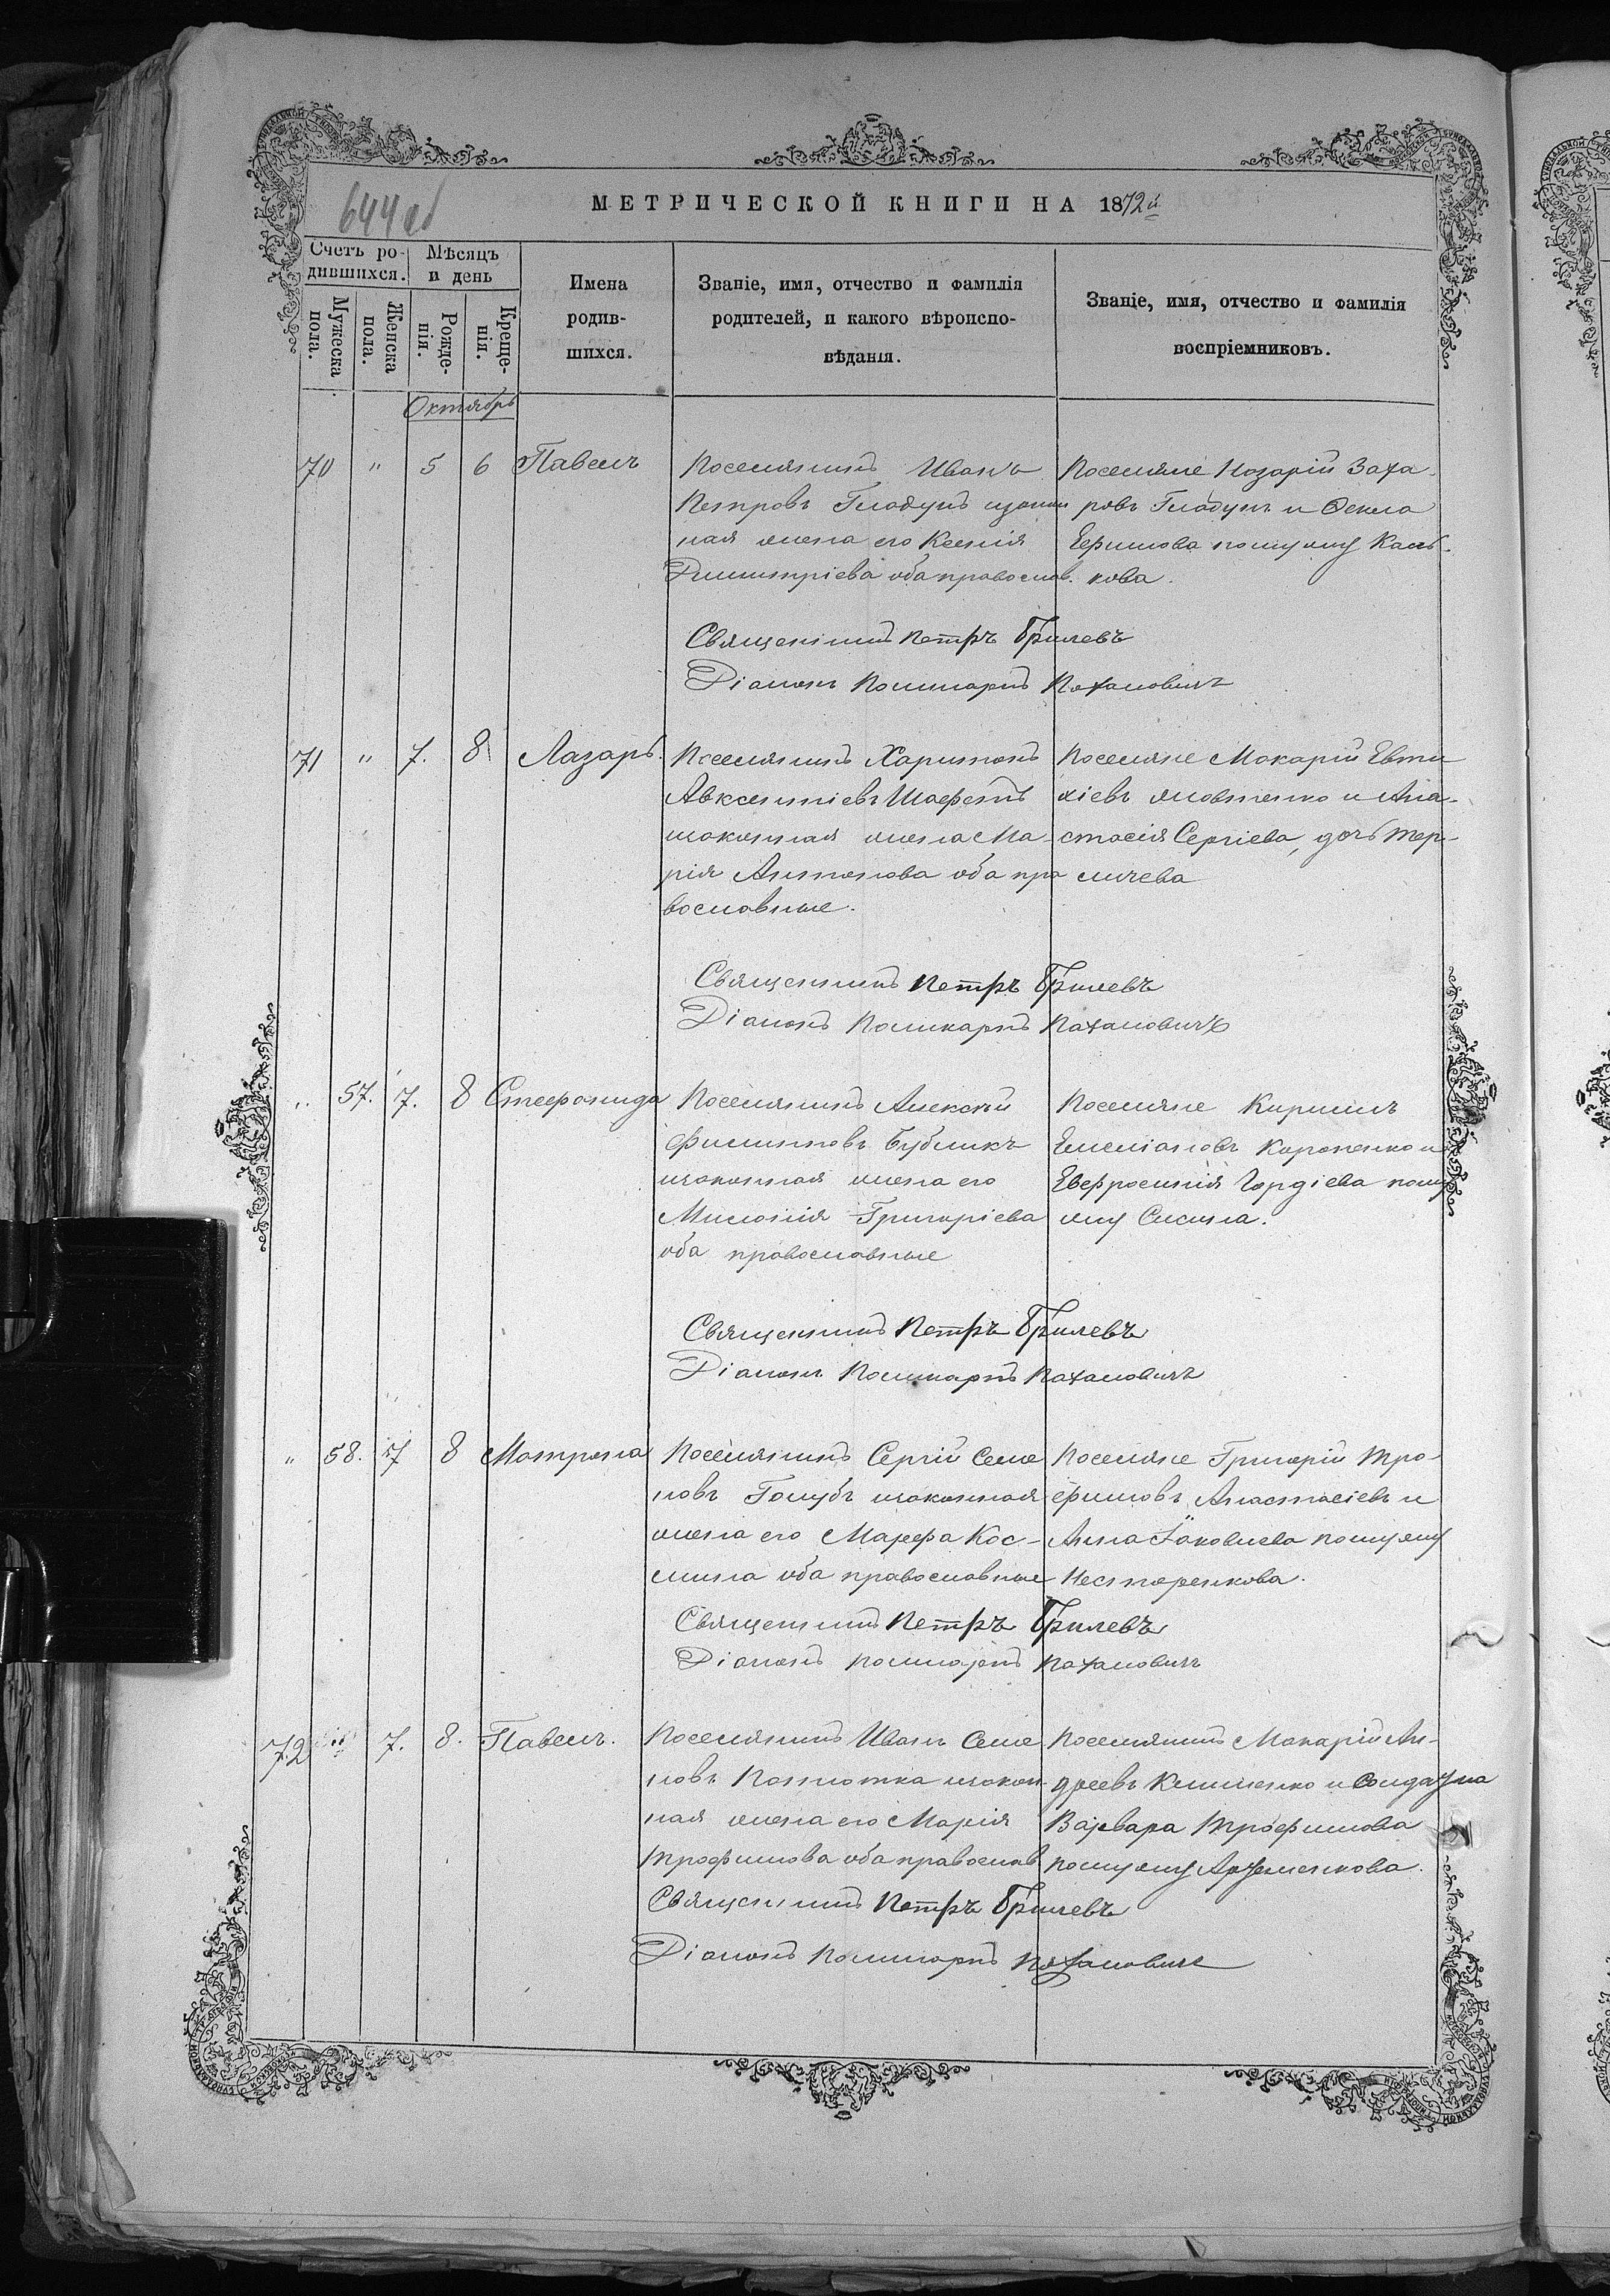 644 об
МЕТРИЧЕСКОЙ КНИГИ НА 1872й
Счетъ ро-
дившихся.
Мѣсяцъ
и день
Мужеска
пола.
Женска
пола.
Рожде-
нія.
Креще-
нія.
Имена
родив-
шихся.
Званіе, имя, отчество и фамилія
родителей, и какого вѣроиспо-
вѣданія.
Званіе, имя, отчество и фамилія
воспріемниковъ.
Октябрь
70 " 5 6 Павелъ
Поселянинъ Иванъ
Петровъ Гладунъ изакон
ная жена его Ксенія
Димитріева оба православ.
Поселяне Назарій Заха-
ровъ Гладунъ и Ѳекла
Ефимова по мужу
кова.
Священникъ Петръ Брилевъ
Діаконъ Поликарпъ Пахаловичъ
71 " 7. 8 Лазарь.
Поселянинъ Харитонъ
Авксентіевъ
изаконная жена Ма-
рія Антонова оба пра
вославные.
Поселяне Макарій Евти
хіевъ Яковченко и Ана-
стасія Сергіева, дочь Тер-
личева
Священникъ Петръ Брилевъ
Діаконъ Поликарпъ Пахаловичъ
" 57. 7. 8 Стефанида
Поселянинъ Алексѣй
Филиповъ Бубликъ
изаконная жена его
Миланія Григоріева
оба православные
Поселяне Кирилъ
Емеліановъ и
Евфросинія Гордіева по му
жу
Священникъ Петръ Брилевъ
Діаконъ Поликарпъ Пахаловичъ
" 58. 7 8 Матрона
Поселянинъ Сергій Семе
новъ Голубъ изаконная
жена его Марфа Кос-
мина оба православные
Поселяне Григорій Тро-
фимовъ Анастасіевъ и
Анна Яковлева по мужу
Нестеренкова.
Священникъ Петръ Брилевъ
Діаконъ Поликарпъ Пахаловичъ
72 " 7. 8. Павелъ.
Поселянинъ Иванъ Семе
новъ изакон-
ная жена его Марія
Трофимова оба православ
Поселянинъ Макарій Ан-
дреевъ Клименко и Солдатка
Варвара Трофимова
по мужу
Священникъ Петръ Брилевъ
Діаконъ Поликарпъ Пахаловичъ